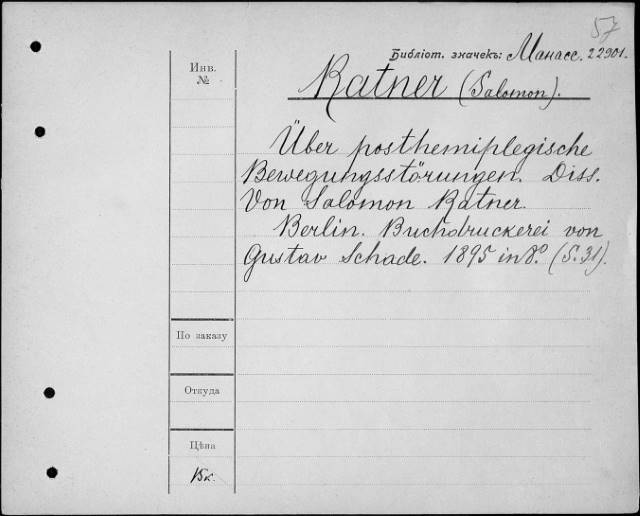 57
Библіот. значекъ: Манасс. 22901.
Инв.
№
Ratner (Salomon).
Über posthemiplegische
Bewegungsstörungen. Diss.
Von Salomon Ratner.
Berlin. Buchdruckerei von
Gustav Schade. 1895 in 8.° (S. 31).
По заказу
Откуда
Цѣна
15к.